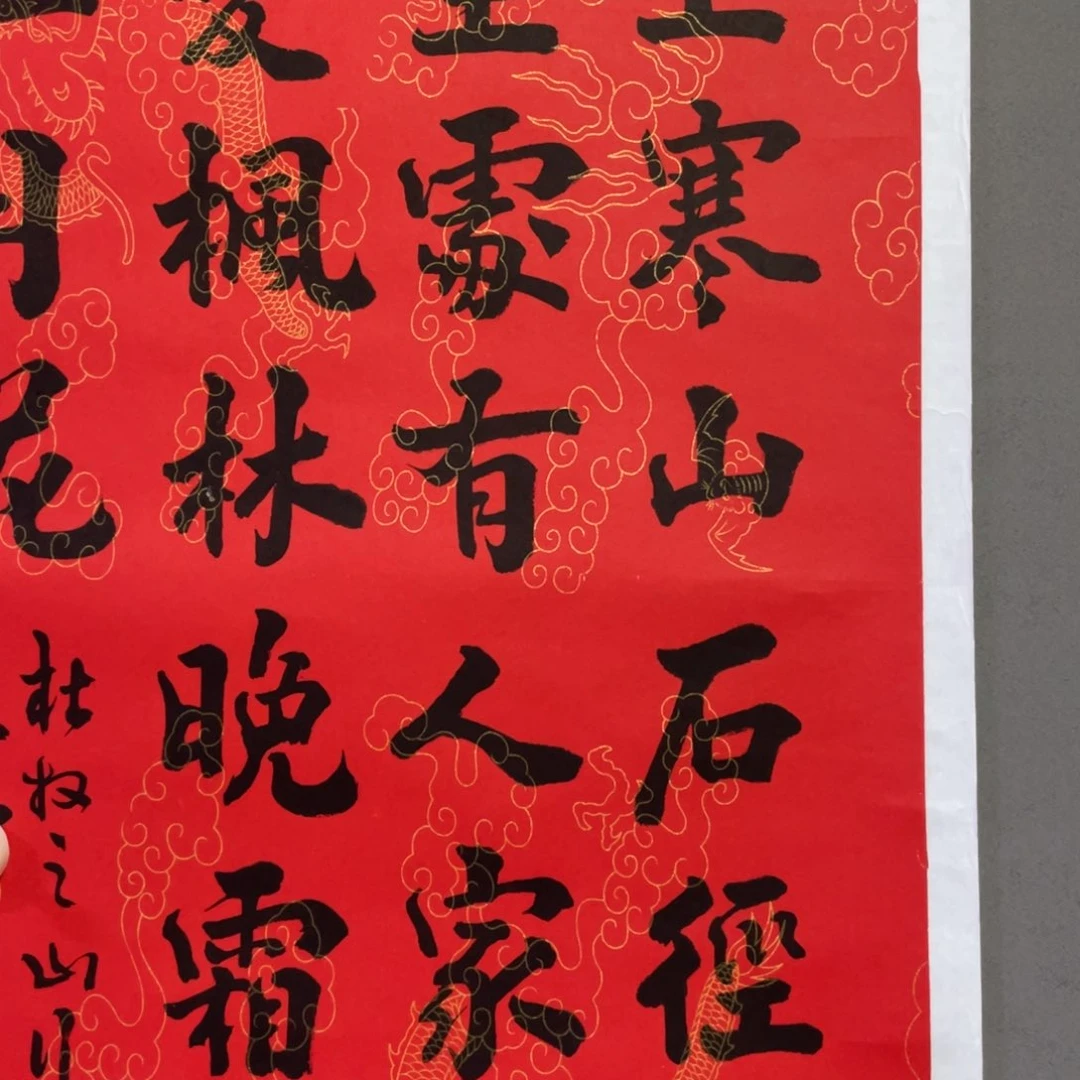 上寒山石徑
生處有人家
愛楓林晚霜
月花
杜牧之山